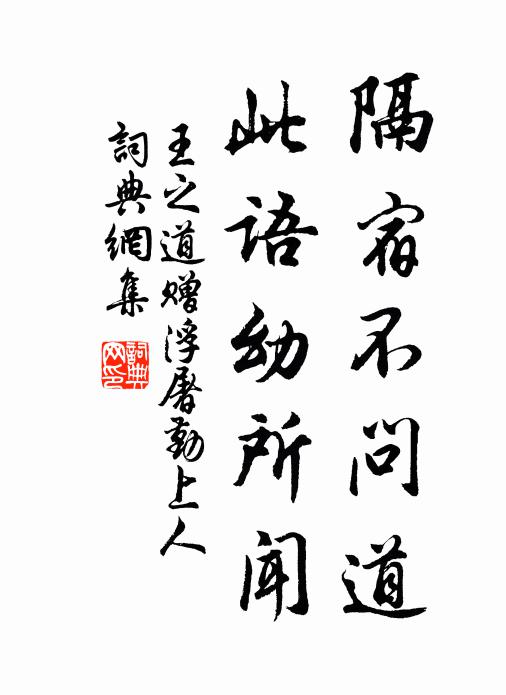 隔宿不问道
此语幼所闻
王之道赠浮屠勤上人
詞典網集
詞典网印